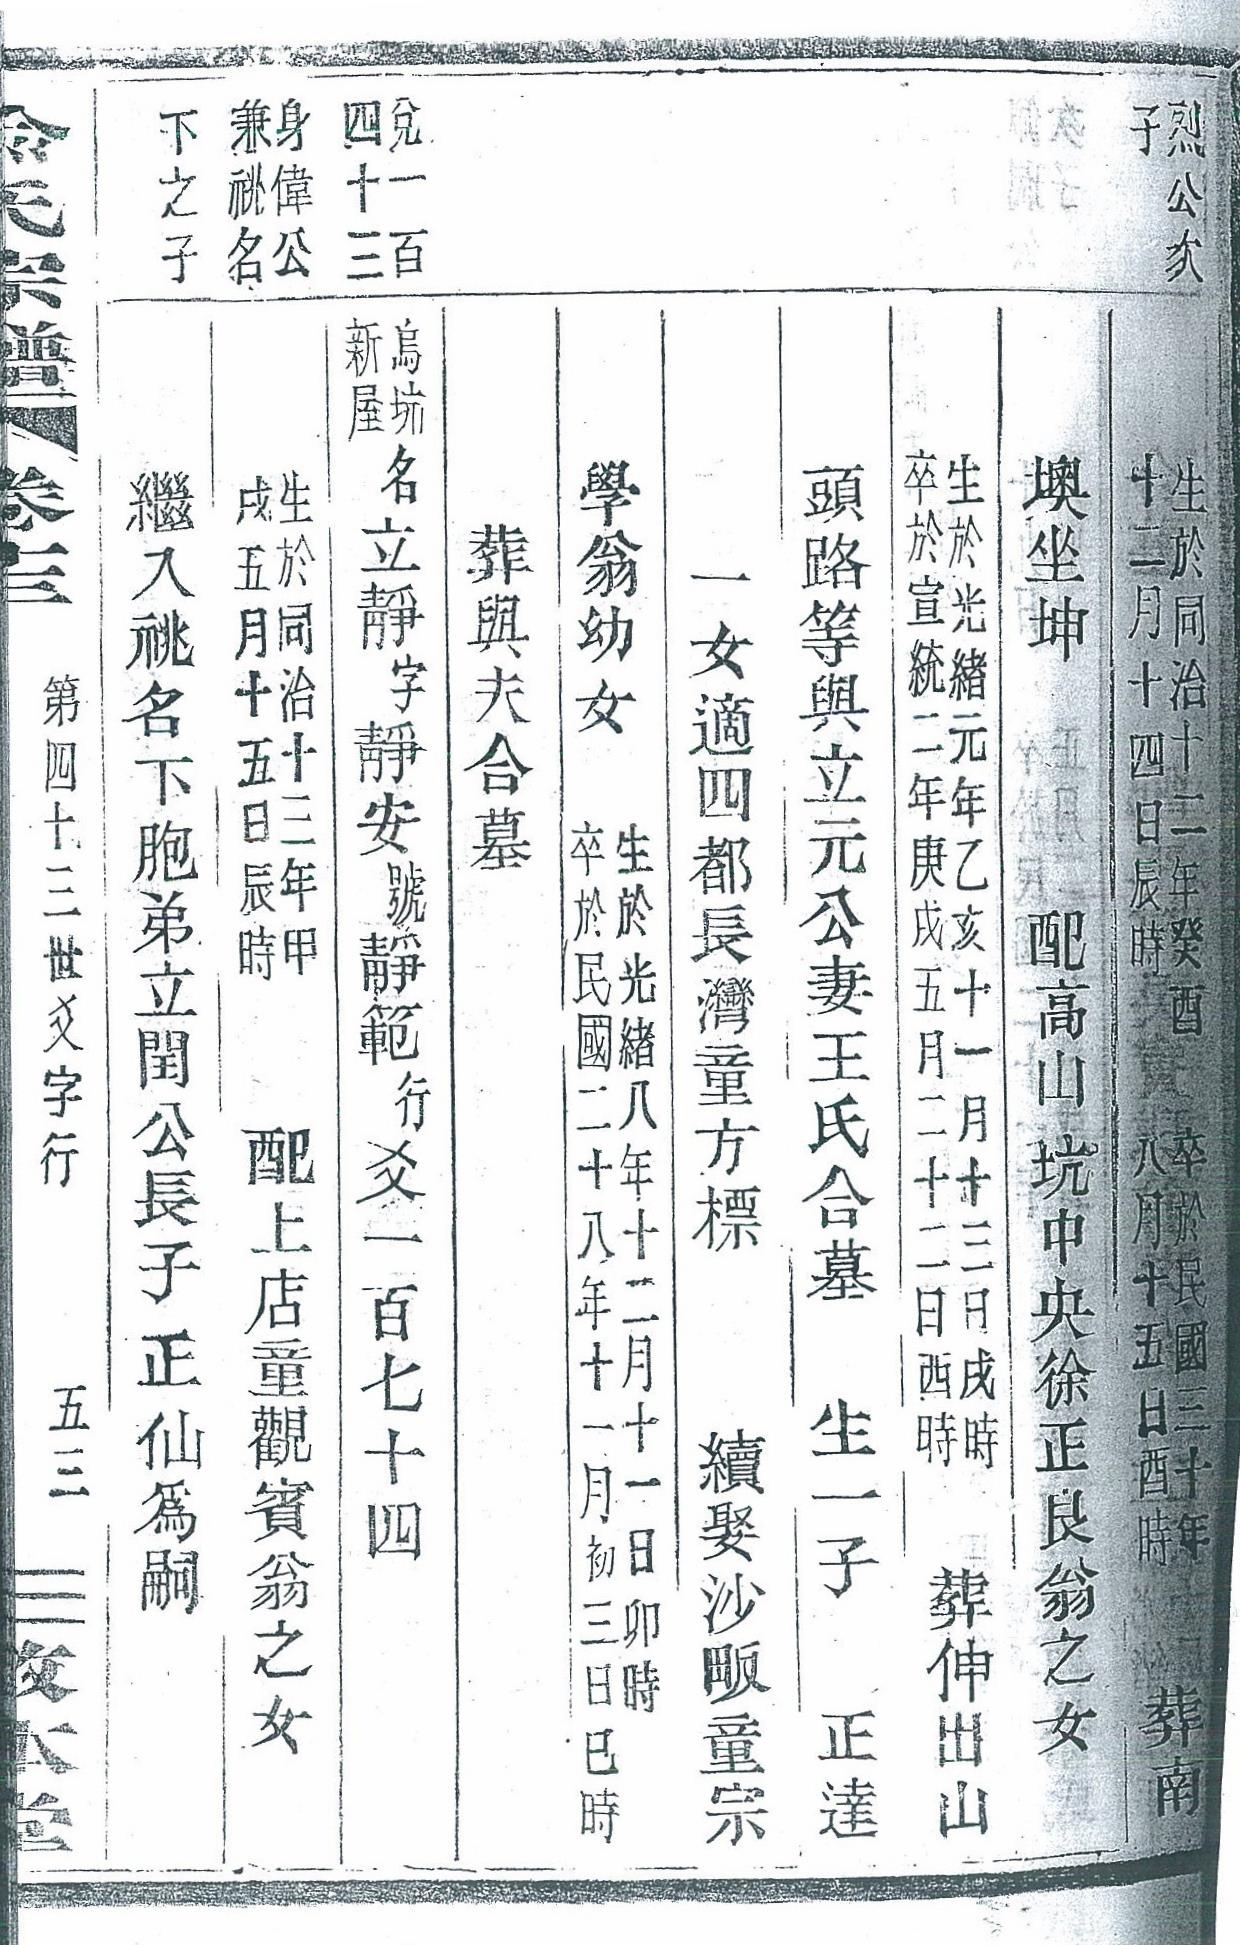 烈公次
子
生於同治十二年癸酉
十二月十四日辰時
卒於民國三十年
八月十五日酉時
葬南
墺坐坤 配高山坑中央徐正良翁之女
生於光緒元年乙亥十一月十三日戌時
卒於宣統二年庚戌五月二十二日酉時
葬伸出山
頭路等與立元公妻王氏合墓 生一子 正達
一女適四都長灣童方標 續娶沙畈童宗
學翁幼女
生於光緒八年十二月十一日卯時
卒於民國二十八年十一月初三日巳時
葬與夫合墓
兌一百
四十三
烏坑
新屋
名立靜字靜安號靜範行爻一百七十四
身偉公
兼祧名
生於同治十三年甲
戌五月十五日辰時
配上店童觀賓翁之女
下之子
繼入祧名下胞弟立閏公長子正仙為嗣
氏宗譜 卷三 第四十三世爻字行 五三